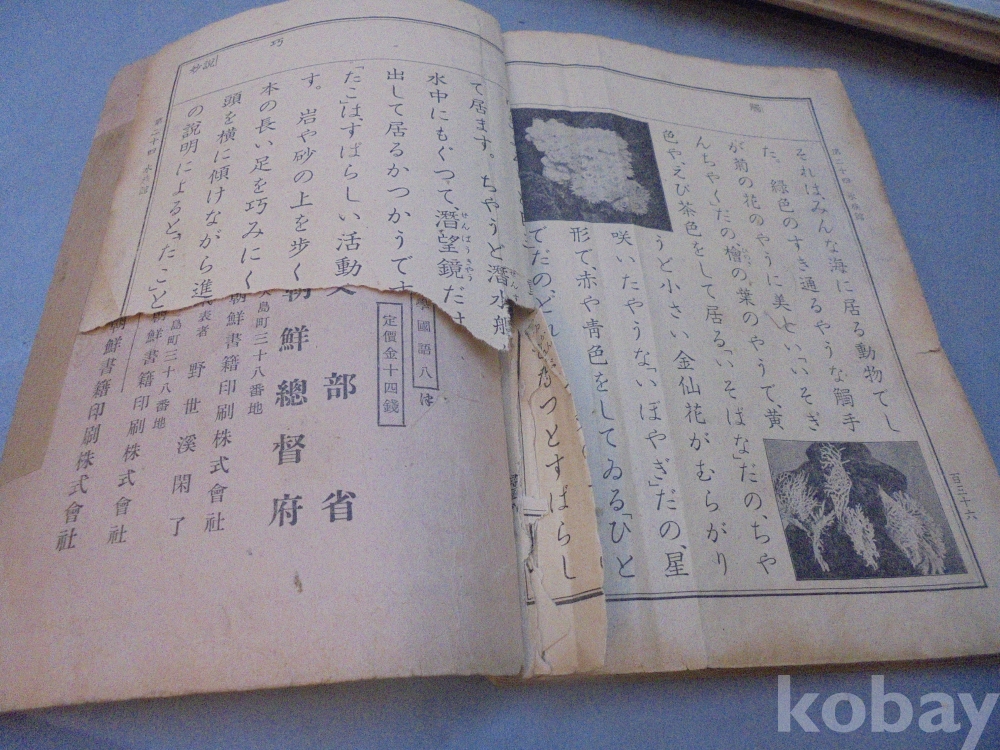 觸
第二十四 水族館
それはみんな海に居る動物でし
た。綠色のすき通るやうな觸手
が菊の花のやうに美しい「いそぎ
んちやく」だの、檜の葉のやうで、黄
色やえび茶色をして居る「いそばな」だの、ちや
うど小さい金仙花がむらがり
咲いたやうな「いぼやぎ」だの、星
形で、赤や青色をしてゐる「ひと
でだのどれ
つとすばらし
百三十六
巧
説
て居ます。ちやうど潛水
水中にもぐつて、潛望鏡だけ
せんばうきやう
出して居るかつかうです
「たこ」は、すばらしい活動
す。岩や砂の上を歩く
本の長い足を巧みにく
頭を橫に傾けながら進
の説明によると、「たこ」と
國語八
定價金十四錢
部省
朝鮮總督府
島町三十八番地
朝鮮書籍印刷株式會社
表者 野世溪閑了
島町三十八番地
朝鮮書籍印刷株式會社
鮮書籍印刷株式會社
kobay